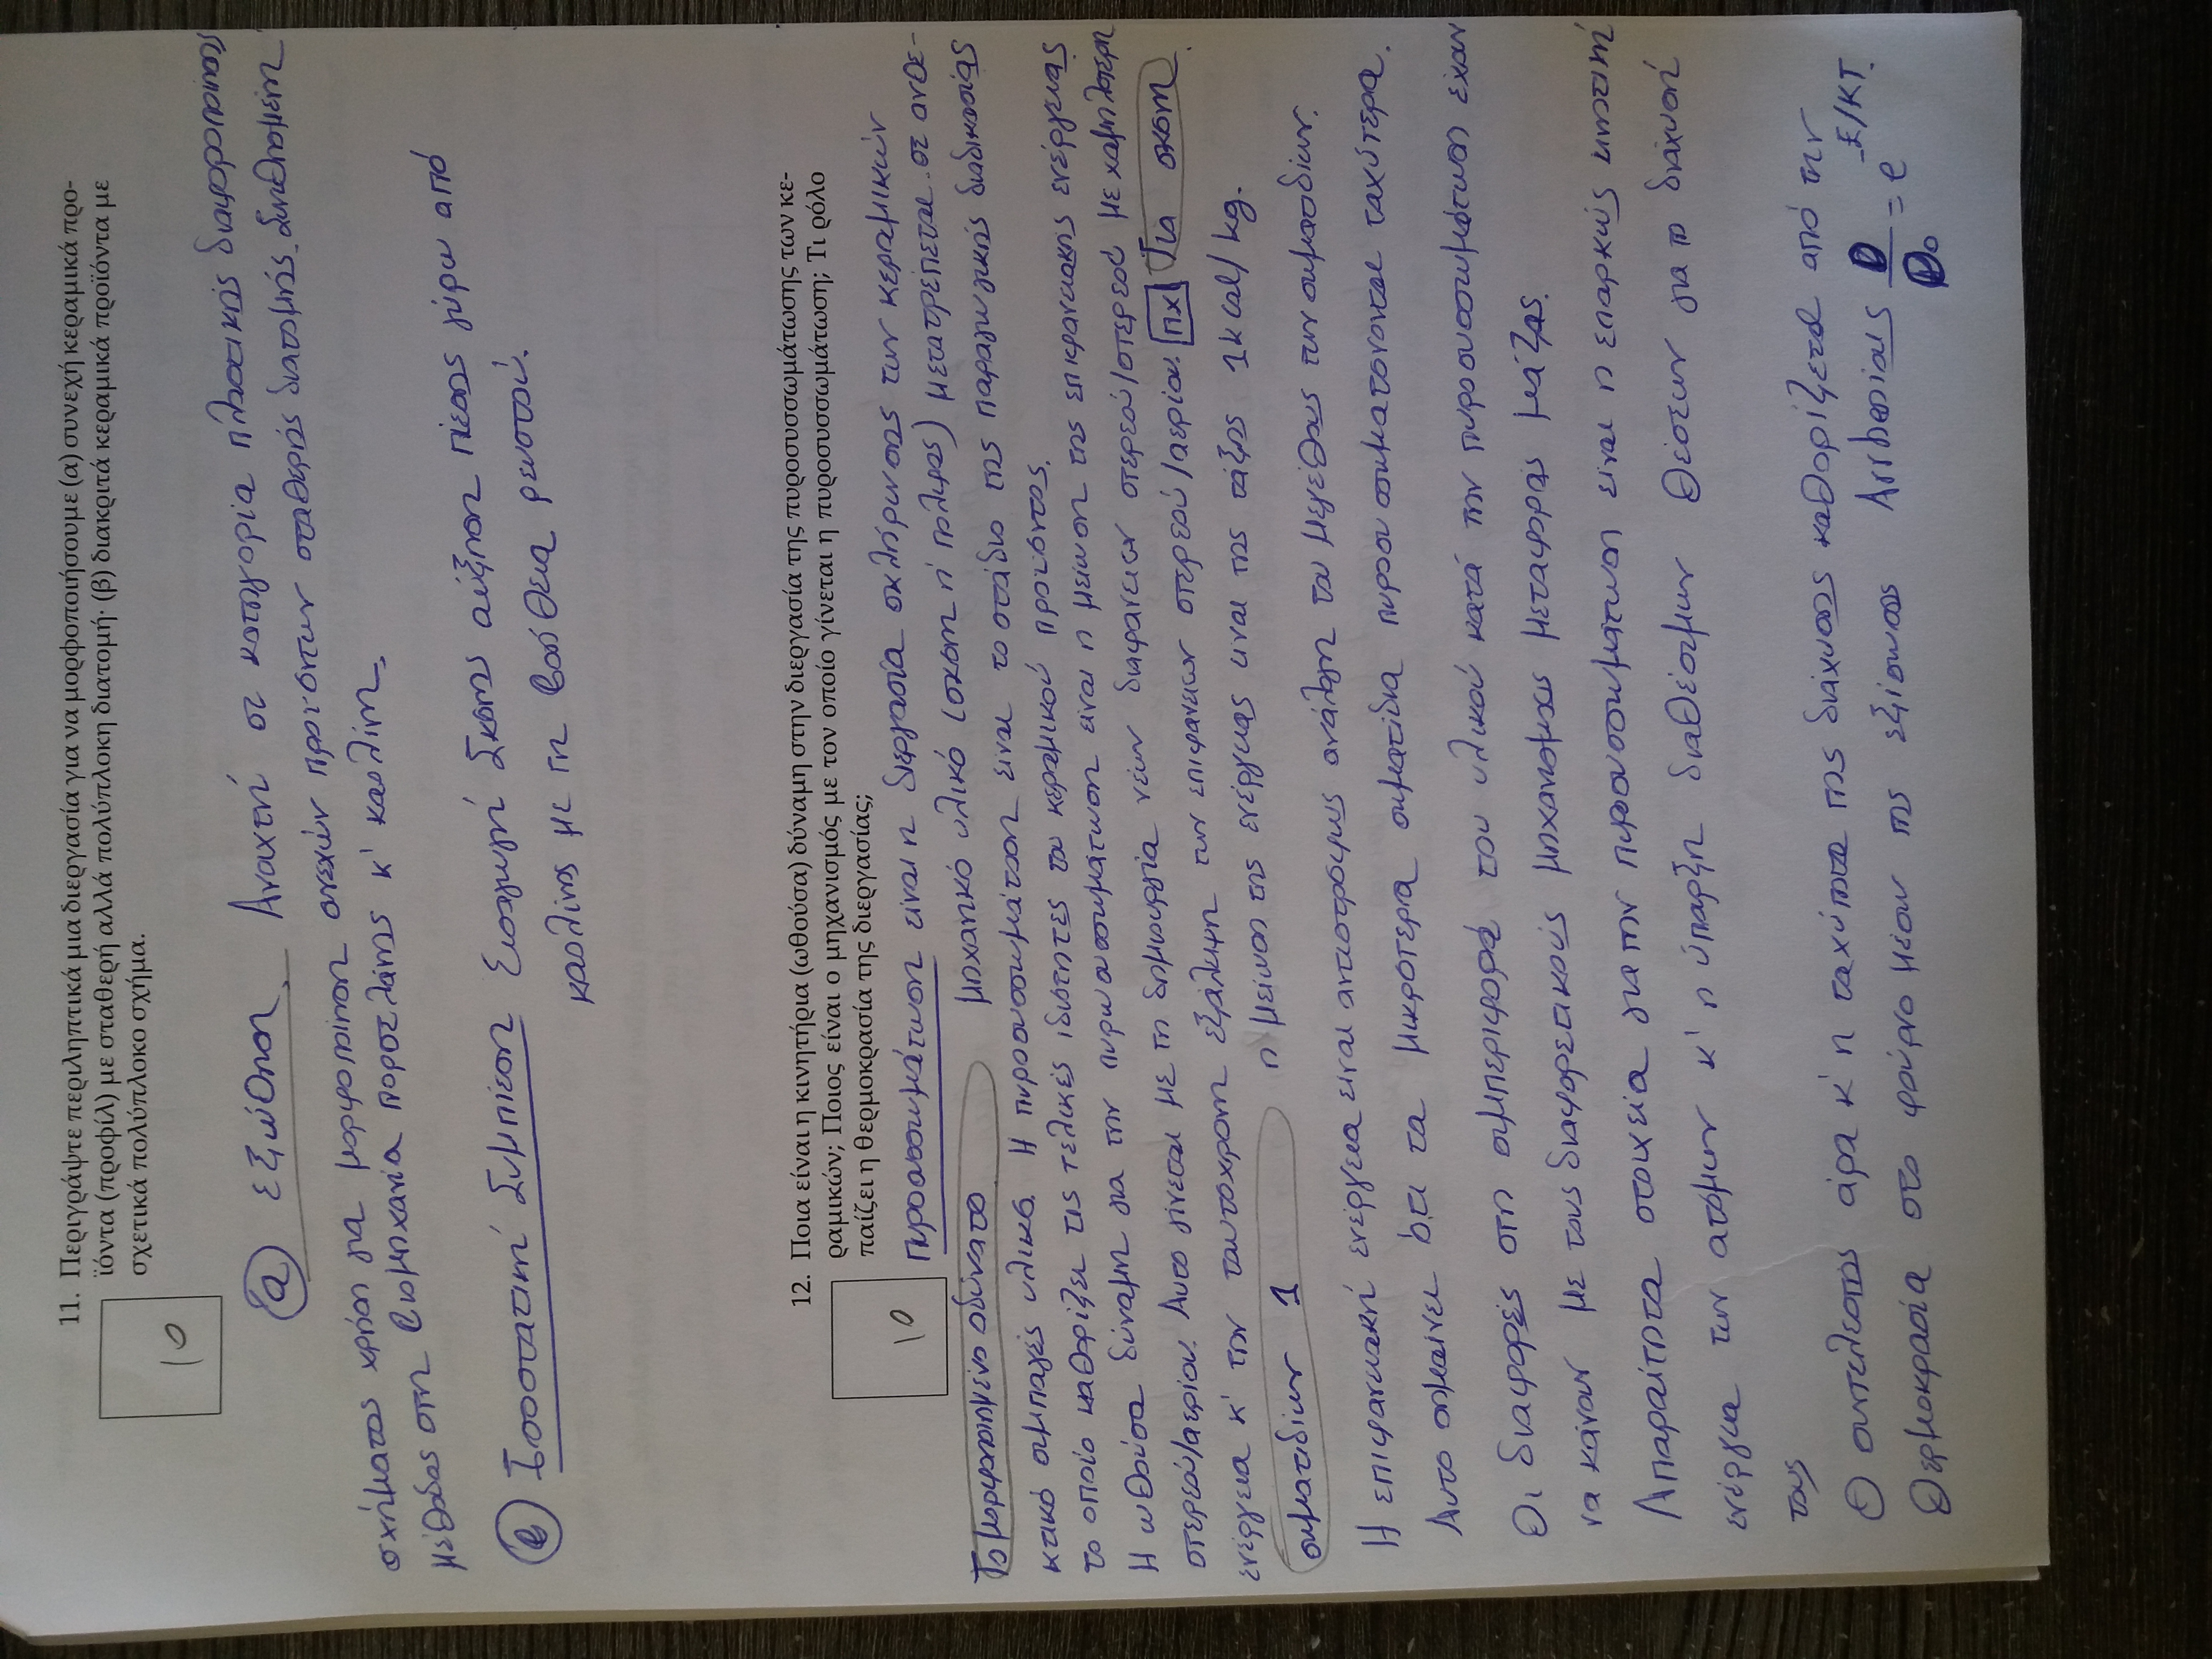 11. Περιγράψτε περιληπτικά μια διεργασία για να μορφοποιήσουμε (α) συνεχή κεραμικά προ-
ϊόντα (προφίλ) με σταθερή αλλά πολύπλοκη διατομή· (β) διακριτά κεραμικά προϊόντα με
σχετικά πολύπλοκο σχήμα.
10
(α) εξώθηση Ανοιχτή σε κατηγορία πλαστικής διαμορφοποίησης
σχήματος χρήση για μορφοποίηση συνεχών προϊόντων σταθερής διατομής. Συνηθισμένη
μέθοδος στη βιομηχανία πορσελάνης κ' καολίνη.
(β) Ισοστατική Συμπίεση Εισαγωγή σκόνης αύξηση πίεσης γύρω από
καολίνης με τη βοήθεια ρευστού.
12. Ποια είναι η κινητήρια (ωθούσα) δύναμη στην διεργασία της πυροσυσσωμάτωσης των κε-
ραμικών; Ποιος είναι ο μηχανισμός με τον οποίο γίνεται η πυροσυσσωμάτωση; Τι ρόλο
παίζει η θερμοκρασία της διεργασίας;
10
Πυροσυσωμάτωση είναι η διεργασία σκλήρυνσης των κεραμικών
Το μορφοποιημένο αδύνατο μηχανικό υλικό (σκόνη ή πόλφος) μετατρέπεται σε ανθε-
κτικό συμπαγές υλικό. Η πυροσυσσωμάτωση είναι το στάδιο της παραγωγικής διαδικασίας
το οποίο καθορίζει τις τελικές ιδιότητες του κεραμικού προϊόντος.
Η ωθούσα δύναμη για την πυροσυσσωμάτωση είναι η μείωση της επιφανειακής ενέργειας
στερεού/αερίου. Αυτό γίνεται με τη δημιουργία νέων διεφανειών στερεού/στερεού με χαμηλότερη
ενέργεια κ' την ταυτόχρονη εξάλειψη των επιφανειών στερεού/αερίου. πχ Για σκόνη
σωματιδίων 1 η μείωση της ενέργειας είναι της τάξης 1kcal/kg.
Η επιφανειακή ενέργεια είναι αντιστρόφως ανάλογη του μεγέθους των σωματιδίων.
Αυτό σημαίνει ότι τα μικρότερα σωματίδια πυροσυσσωματώνονται ταχύτερα.
Οι διαφορές στη συμπεριφορά του υλικού κατά την πυροσυσσωμάτωση έχουν
να κάνουν με τους διαφορετικούς μηχανισμούς μεταφοράς μάζας.
Απαραίτητα στοιχεία για την πυροσυσσωμάτωση είναι η επαρκής κινητική
ενέργεια των ατόμων κ' η ύπαρξη διαθέσιμων θέσεων για τη διάχυσή
τους
Ο συντελεστής άρα κ' η ταχύτητα της διάχυσης καθορίζεται από την
θερμοκρασία στο φούρνο μέσου της εξίσωσης Arrhenius D/D₀ = e^-E/KT.